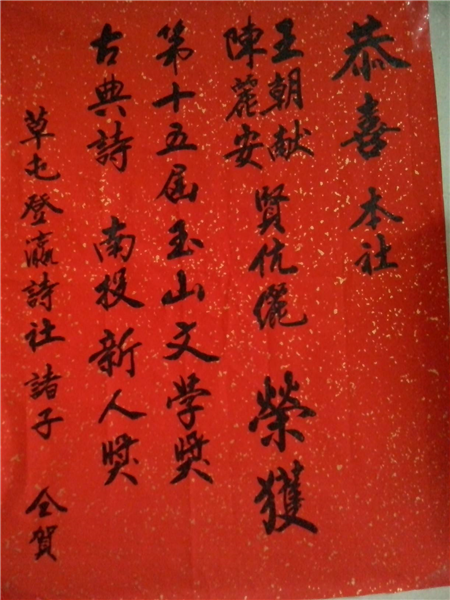 恭喜 本社
王朝献
陳麗安
賢伉儷 榮獲
第十五屆玉山文学獎
古典詩 南投新人獎
草屯登瀛詩社 諸子 仝賀